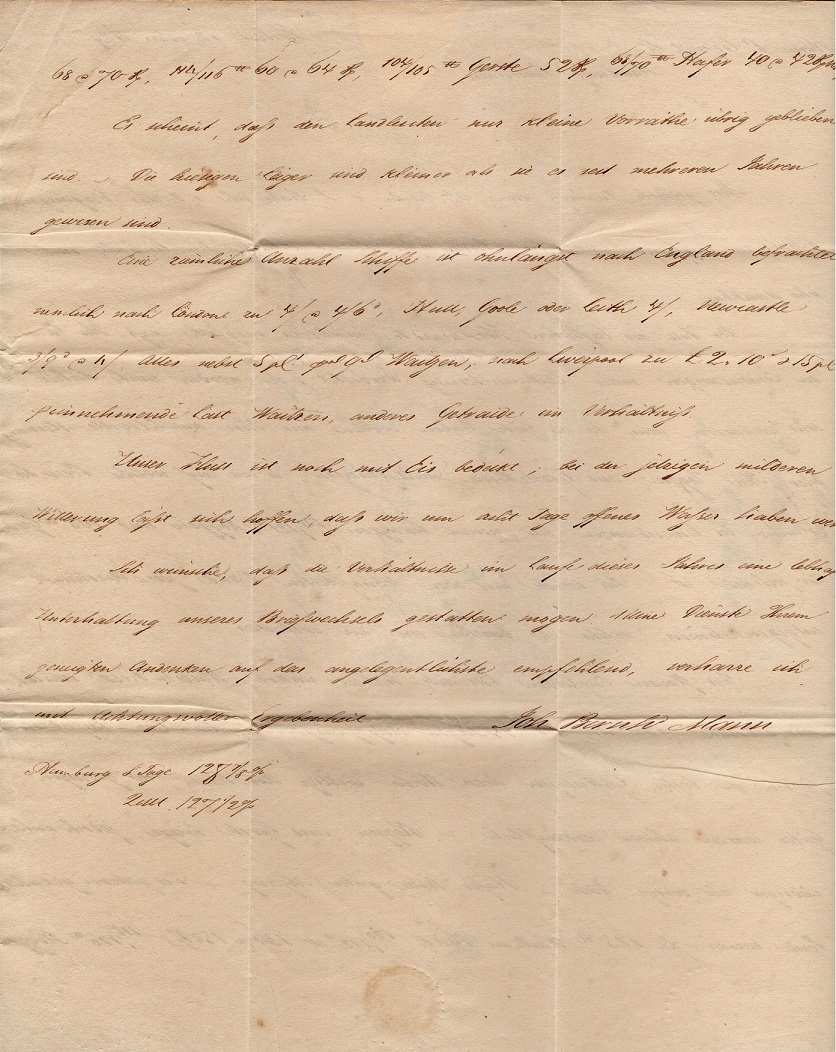 68 @ 70 rf, 114/116 tt 60 @ 64 rf, 104/105 tt Gerste 52 rf, 68/70 tt Hafer 40 @ 42
Es scheint, daß den Landleuten nur kleine Vorräthe übrig geblieben
sind. Die hiesigen Läger sind kleiner als sie es seit mehreren Jahren
gewesen sind.
Eine ziemliche Anzahl Schiffe ist ohnlängst nach England befrachtet
nemlich nach London zu 4/ @ 4/6d, Hull, Goole oder Leith 4/, Newcastle
3/9d @ 4/ alles nebst 5 pCt Waitzen, nach Liverpool zu £ 2, 10s & 15 pC
einnehmende Last Waitzen, anderes Getraide im Verhältniß.
Unser Fluss ist noch mit Eis bedeckt, bei der jetzigen milderen
Witterung läßt sich hoffen, daß wir um acht Tage offenes Waßer haben
Ich wünsche, daß die Verhältnisse im Laufe dieses Jahres eine
Unterhaltung unseres Briefwechsels gestatten mögen. Meine Dienste Ihrem
geneigten Andenken auf das angelegentlichste empfehlend, verharre ich
mit Achtungvoller Ergebenheit Joh Bernhd Mann
Hamburg 8 Tage 127 7/8 %
127 1/2 %